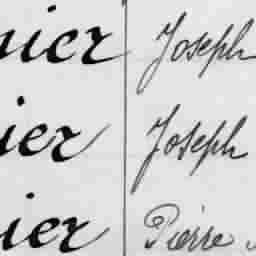 nier Joseph
ier Joseph
ier Pierre